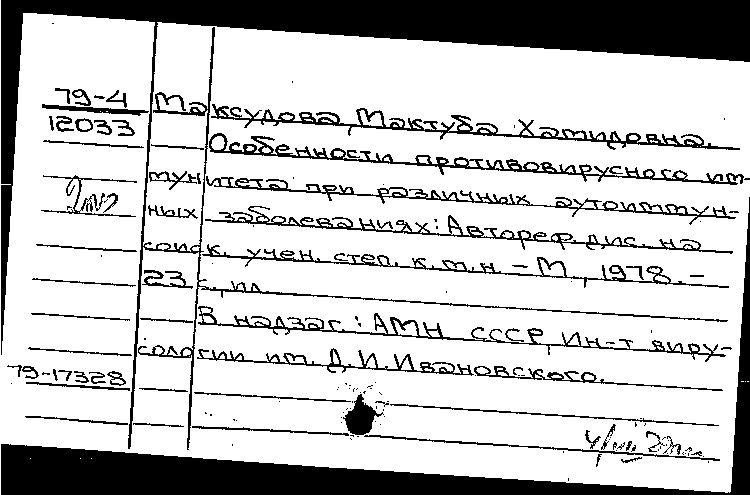 79-4
12033
Максудова, Мактуба Хамидовна.
Особенности противовирусного им-
мунитета при различных аутоиммун-
ных заболеваниях: Автореф. дис. на
соиск. учен. степ. к.м.н. – М., 1978. –
23 с., ил.
В надзаг.: АМН СССР, Ин-т виру-
сологии им. Д.И.Ивановского.
79-17328